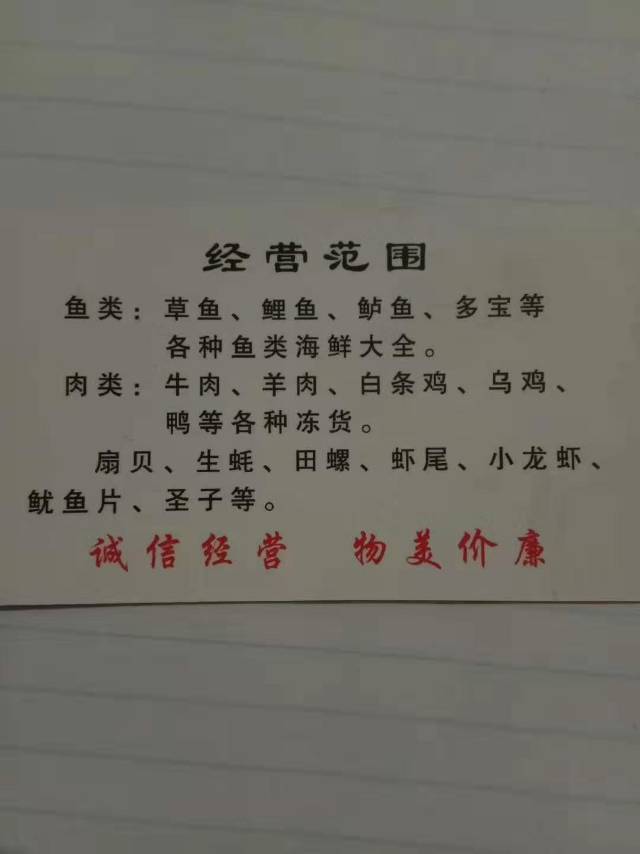 经营范围
鱼类：草鱼、鲤鱼、鲈鱼、多宝等
各种鱼类海鲜大全。
肉类：牛肉、羊肉、白条鸡、乌鸡、
鸭等各种冻货。
扇贝、生蚝、田螺、虾尾、小龙虾、
鱿鱼片、圣子等。
诚信经营 物美价廉